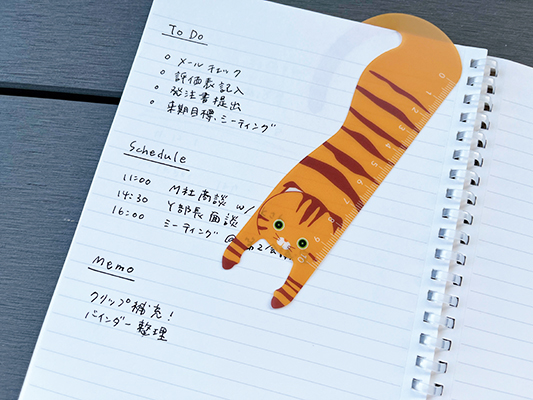 To Do
○ メールチェック
○ 評価表記入
○ 発注書提出
○ 来期目標ミーティング
Schedule
11:00 M社商談 w/
14:30 Y部長面談
16:00 ミーティング @
Memo
クリップ補充!
バインダー整理
0
1
2
3
4
5
6
7
8
9
10